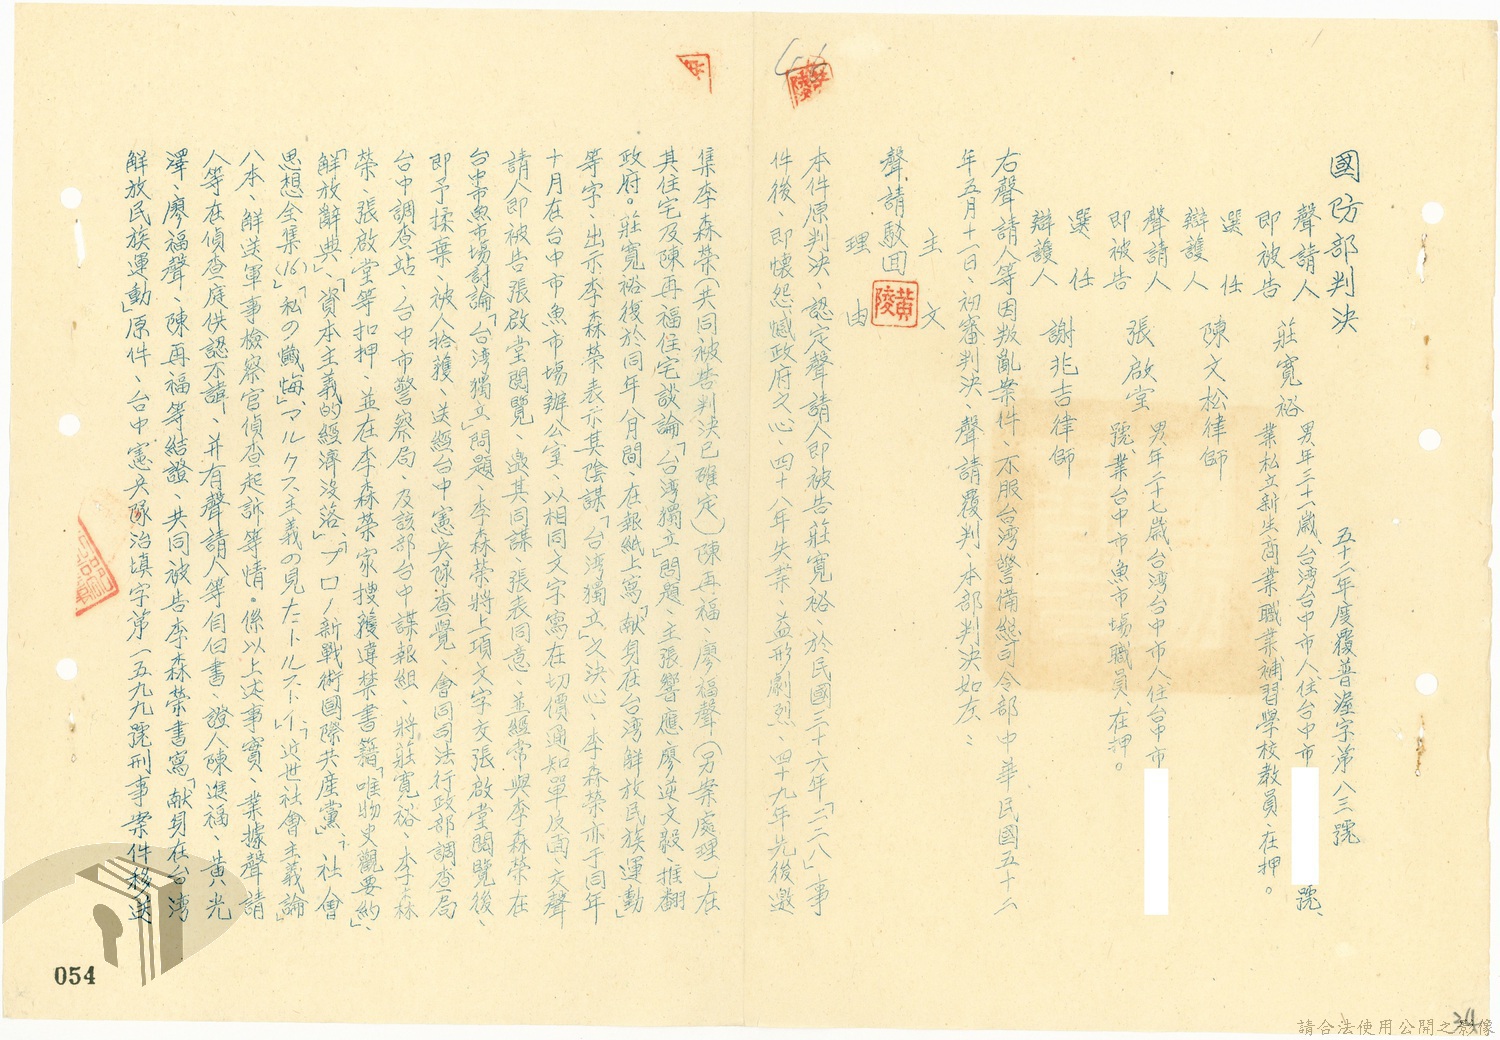 國防部判決
五十二年度覆普渥字第八三號
聲請人
即被告 莊寬裕 男、年三十一歲、台湾台中市人、住台中市 號、
業私立新生商業職業補習學校教員、在押。
選任
辯護人 陳文松律師
聲請人
即被告 張啟堂 男、年二十七歲、台湾台中市人、住台中市
號、業台中市魚市場職員、在押。
選任
辯護人 謝兆吉律師
右聲請人等因叛亂案件、不服台湾警備総司令部中華民國五十二
年五月十一日、初審判決、聲請覆判、本部判決如左：
主文
聲請駁回
理由
本件原判決、認定聲請人即被告莊寬裕、於民國三十六年「二二八」事
件後、即懷怨憾政府之心、四十八年失業、益形劇烈、四十九年先後邀
集李森榮（共同被告判決已確定）陳再福、廖福聲（另案處理）在
其住宅及陳再福住宅談論「台湾獨立」問題、主張響應廖逆文毅、推翻
政府。莊寬裕復於同年八月間、在報紙上寫「献身在台湾解放民族運動」
等字、出示李森榮表示其陰謀「台湾獨立」之決心、李森榮亦于同年
十月在台中市魚市場辦公室、以相同文字寫在切價通知單反面、交聲
請人即被告張啟堂閱覽、邀其同謀、張表同意、並經常與李森榮在
台中市魚市場討論「台湾獨立」問題、李森榮將上項文字交張啟堂閱覽後、
即予揉棄、被人拾獲、送經台中憲兵隊查覺、會同司法行政部調查局
台中調查站、台中市警察局、及該部台中諜報組、將莊寬裕、李森
榮、張啟堂等扣押、並在李森榮家搜獲違禁書籍「唯物史觀要約」、
「解放辭典」、「資本主義的經濟没落」、「プロノ新戰術國際共産黨」、「社會
思想全集(16)」「私の懺悔」、「マルクス主義の見たトルストイ」「近世社會主義論」
八本、解送軍事檢察官偵查起訴等情。係以上述事實、業據聲請
人等在偵查庭供認不諱、并有聲請人等自白書、證人陳進福、黄光
澤、廖福聲、陳再福等結證、共同被告李森榮書寫「献身在台湾
解放民族運動」原件、台中憲兵隊治填字第一五九九號刑事案件移送
054
34
請合法使用公開之影像